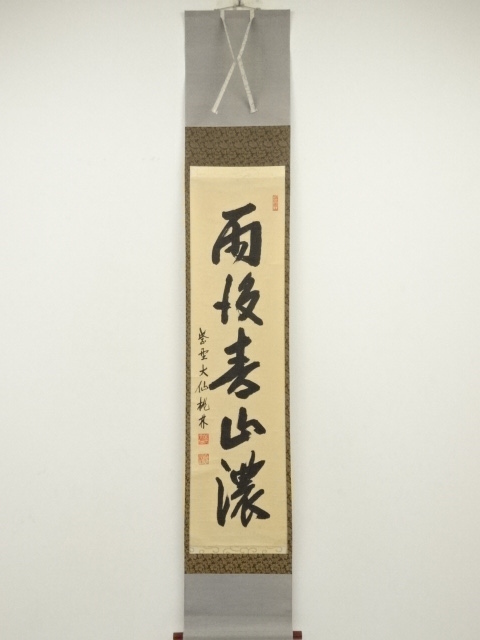 雨後青山濃
紫野大仙桃林